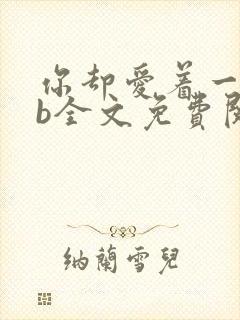 你却愛着一
b全文免費閱
納蘭雪兒